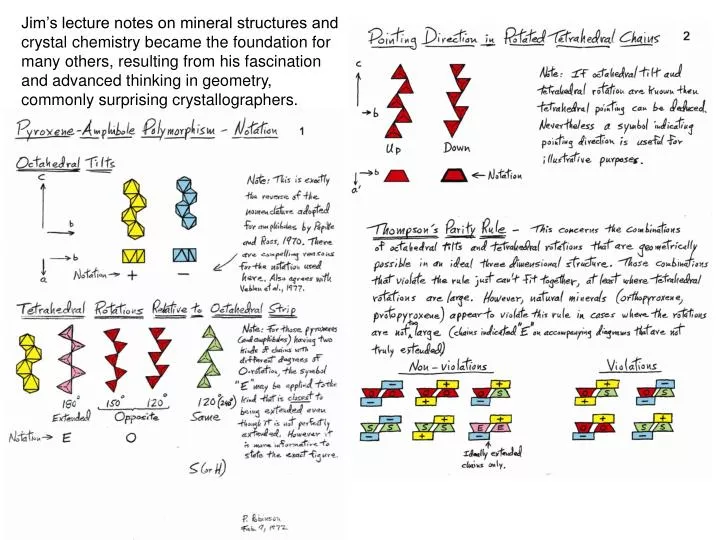 Jim's lecture notes on mineral structures and
crystal chemistry became the foundation for
many others, resulting from his fascination
and advanced thinking in geometry,
commonly surprising crystallographers.
Pyroxene-Amphibole Polymorphism - Notation 1
Octahedral Tilts
c
b
b
a
Notation → + −
Note: This is exactly
the reverse of the
nomenclature adopted
for amphiboles by Papike
and Ross, 1970. There
are compelling reasons
for the notation used
here. Also agrees with
et al., 1977.
Tetrahedral Rotations Relative to Octahedral Strip
180° 150° 120° 120°
Extended Opposite Same
Notation → E O
S (or H)
Note: For those pyroxenes
(and amphiboles) having two
kinds of chains with
different degrees of
O-rotation, the symbol
"E" may be applied to the
kind that is closest to
being extended even
though it is not perfectly
extended. However it
is more informative to
state the exact figure.
P. Robinson
Feb. 9, 1972
Pointing Direction in Rotated Tetrahedral Chains 2
c
b
Up Down
b
a'
← Notation
Note: If octahedral tilt and
tetrahedral rotation are known then
tetrahedral pointing can be deduced.
Nevertheless a symbol indicating
pointing direction is useful for
illustrative purposes.
Thompson's Parity Rule - This concerns the combinations
of octahedral tilts and tetrahedral rotations that are geometrically
possible in an ideal three dimensional structure. Those combinations
that violate the rule just can't fit together, at least where tetrahedral
rotations are large. However, natural minerals (orthopyroxene,
protopyroxene) appear to violate this rule in cases where the rotations
are not too large (chains indicated "E" on accompanying diagrams that are not
truly extended)
Non-violations Violations
− − + + + −
O O O O O S O O O S
− + − − +
− + + + −
S S S S E E O S S S
− + − − +
Ideally extended
chains only.